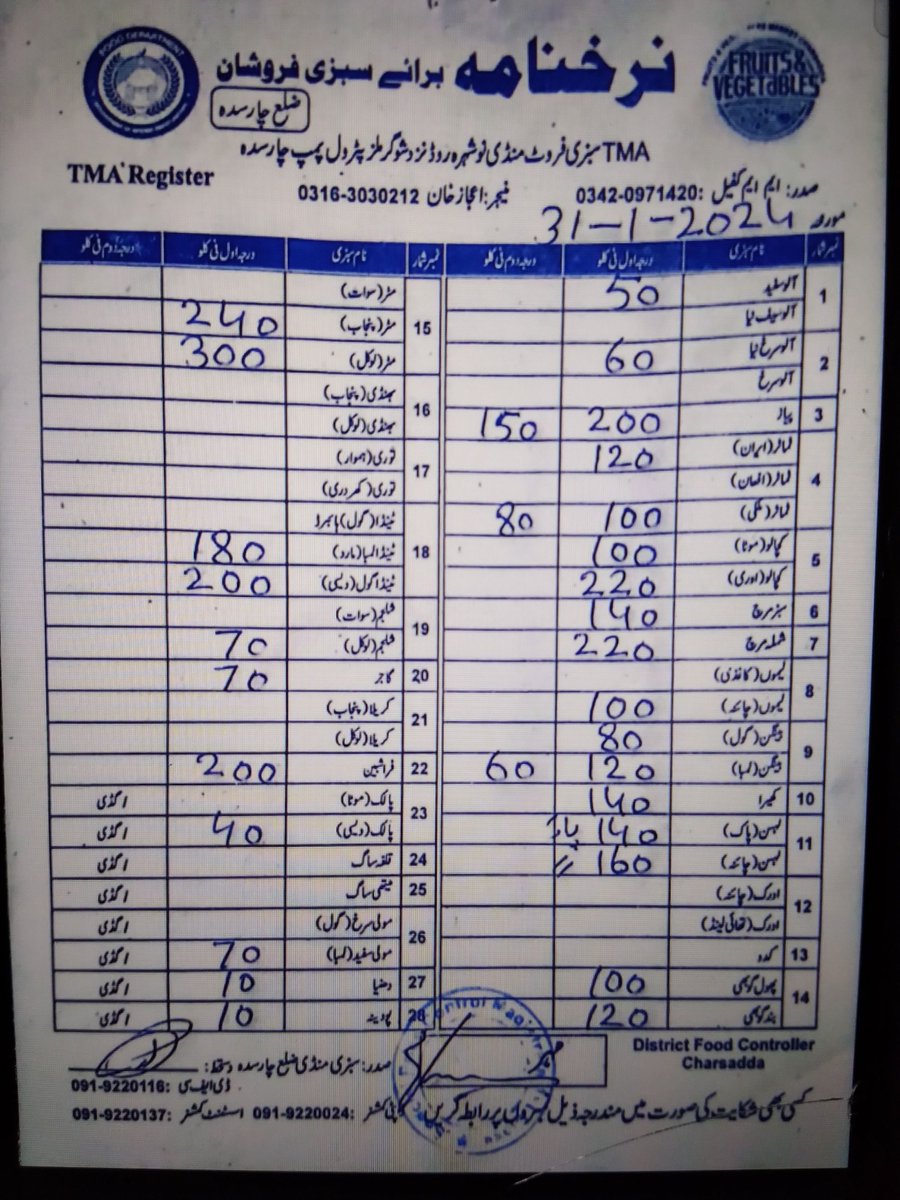 نرخنامہ برائے سبزی فروشان
ضلع چارسدہ
FOOD DEPARTMENT
FRUITS & VEGETABLES
TMA سبزی فروٹ منڈی نوشہرہ روڈ نزد شوگر ملز پٹرول پمپ چارسدہ
TMA Register
صدر: ایم ایم کفیل :0342-0971420 منیجر: اعجاز خان 0316-3030212
مورخہ 31-1-2024
نمبر شمار نام سبزی درجہ اول فی کلو درجہ دوم فی کلو
1 آلو سفید 50
آلو سفید نیا
2 آلو سرخ نیا 60
آلو سرخ
3 پیاز 200 150
4 ٹماٹر (ایران) 120
ٹماٹر
ٹماٹر (ملکی) 100 80
5 کچالو (موٹا) 100
کچالو (اوری) 220
6 سبز مرچ 140
7 شملہ مرچ 220
8 لیموں (کاغذی)
لیموں (چائنہ) 100
9 بینگن (گول) 80
بینگن (لمبا) 120 60
10 کھیرا 140
11 لہسن (پاک) 140 پاؤ
لہسن (چائنہ) 160 〃
12 ادرک (چائنہ)
ادرک (تھائی لینڈ)
13 کدو
14 پھول گوبھی 100
بند گوبھی 120
نمبر شمار نام سبزی درجہ اول فی کلو درجہ دوم فی کلو
15 مٹر (سوات)
مٹر (پنجاب) 240
مٹر (لوکل) 300
16 بھنڈی (پنجاب)
بھنڈی (لوکل)
17 توری (ہموار)
توری (کھردری)
18 ٹینڈا (گول)
ٹینڈا لمبا (مارو) 180
ٹینڈا گول (دیسی) 200
19 شلجم (سوات)
شلجم (لوکل) 70
20 گاجر 70
21 کریلا (پنجاب)
کریلا (لوکل)
22 فراشبین 200
23 پالک (موٹا) 1 گڈی
پالک (دیسی) 40 1 گڈی
24 ساگ 1 گڈی
25 میتھی ساگ 1 گڈی
26 مولی سرخ (گول) 1 گڈی
مولی سفید (لمبا) 70 1 گڈی
27 دھنیا 10 1 گڈی
28 پودینہ 10 1 گڈی
District Food Controller
Charsadda
صدر: سبزی منڈی ضلع چارسدہ دستخط:
ڈی ایف سی :091-9220116
کسی بھی شکایت کی صورت میں مندرجہ ذیل نمبروں پر رابطہ کریں
ڈپٹی کمشنر :091-9220024 اسسٹنٹ کمشنر :091-9220137